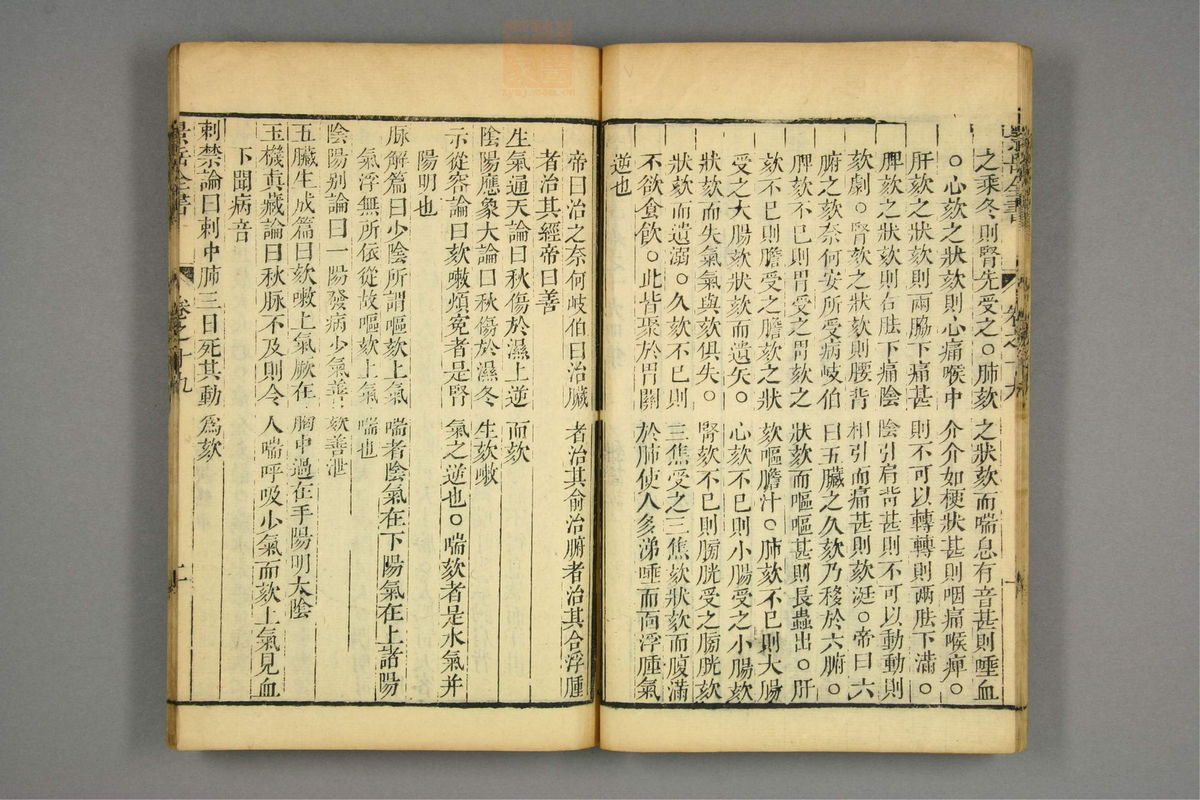 之乘冬則腎先受之。肺欬之狀欬而喘息有音甚則唾血
。心欬之狀欬則心痛喉中介介如梗狀甚則咽痛喉痺。
肝欬之狀欬則兩脇下痛甚則不可以轉轉則两胠下滿。
脾欬之狀欬則右胠下痛陰陰引肩背甚則不可以動動則
欬劇。腎欬之狀欬則腰背相引而痛甚則欬涎。帝曰六
腑之欬奈何安所受病岐伯曰五臟之久欬乃移於六腑。
脾欬不已則胃受之胃欬之狀欬而嘔嘔甚則長蟲出。肝
欬不已則膽受之膽欬之狀欬嘔膽汁。肺欬不已則大腸
受之大腸欬狀欬而遺矢。心欬不已則小腸受之小腸欬
狀欬而失氣氣與欬俱失。腎欬不已則膀胱受之膀胱欬
狀欬而遺溺。久欬不已則三焦受之三焦欬狀欬而腹滿
不欲食飲。此皆聚於胃關於肺使人多涕唾而面浮腫氣
逆也
帝曰治之奈何岐伯曰治臟者治其俞治腑者治其合浮腫
者治其經帝曰善
生氣通天論曰秋傷於濕上逆而欬
陰陽應象大論曰秋傷於濕冬生欬嗽
示從容論曰欬嗽煩寃者是腎氣之逆也。喘欬者是水氣并
陽明也
脉解篇曰少陰所謂嘔欬上氣喘者陰氣在下陽氣在上諸陽
氣浮無所依從故嘔欬上氣喘也
陰陽别論曰一陽發病少氣善欬善泄
五臟生成篇曰欬嗽上氣厥在胸中過在手陽明太陰
玉機真藏論曰秋脉不及則令人喘呼吸少氣而欬上氣見血
下聞病音
刺禁論曰刺中肺三日死其動爲欬
景岳全書
卷之十九
十